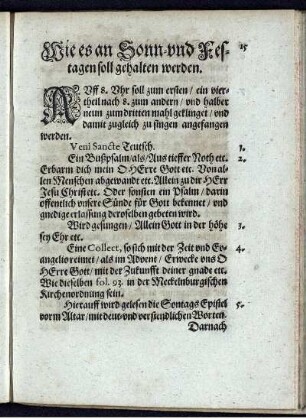 Wie es an Sonn vnd Fes-
tagen soll gehalten werden.
15
AVff 8. Vhr soll zum ersten / ein vier-
theil nach 8. zum andern / vnd halber
neun zum dritten mahl geklinget / vnd
damit zugleich zu singen angefangen
werden.
Veni Sancte Teutsch. 1.
Ein Bußpsalm / als / Aus tieffer Noth etc. 2.
Erbarm dich mein O HErre Gott etc. Von al-
len Menschen abgewandt etc. Allein zu dir HErr
Jesu Christ etc. Oder sonsten ein Psalm / darin
öffentlich vnsere Sünde für Gott bekennet / vnd
gnedige erlassung deroselben gebeten wird.
Wird gesungen / Allein Gott in der höhe 3.
sey Ehr etc.
Eine Collect, so sich mit der Zeit vnd Ev- 4.
angelio reimet / als im Advent / Erwecke vns O
HErre Gott / mit der Zukunfft deiner gnade etc.
Wie dieselben fol. 93. in der Meckelnburgischen
Kirchenordnung sein.
Hierauff wird gelesen die Sontags Epistel 5.
vorm Altar / mit deut- vnd verstendlichen Worten.
Darnach